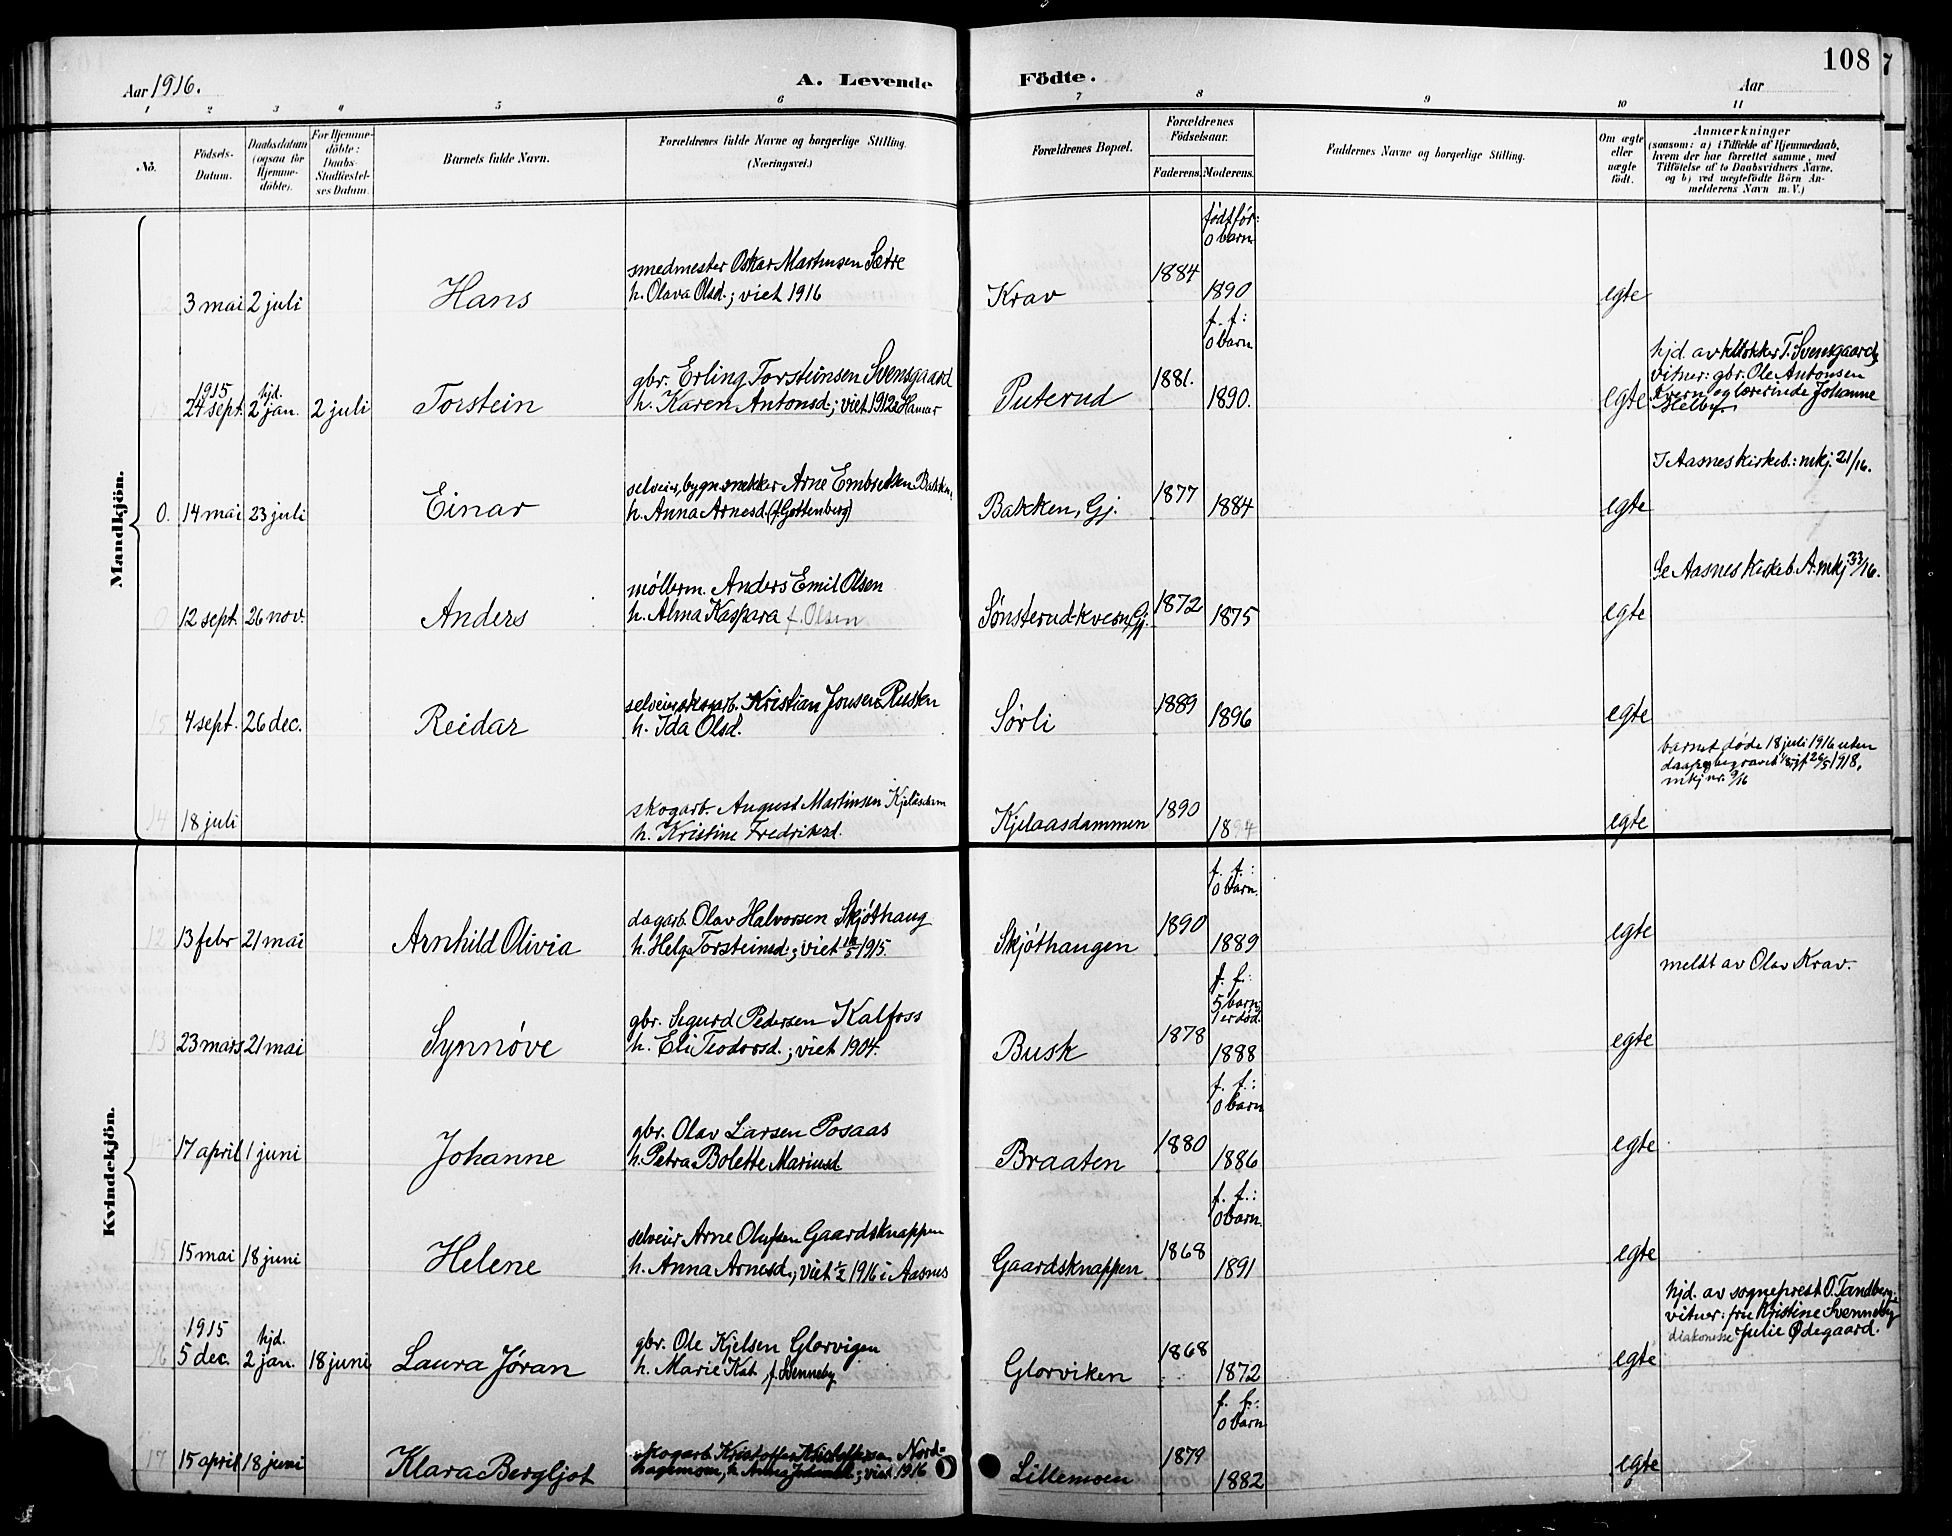 108
Aar 1916.
A. Levende
Födte.
Aar
1 2 3 4 5 6 7 8 9 10 11
No.
Födsels-
Datum.
Daabsdatum
(ogsaa for
Hjemme-
döbte).
For Hjemme-
döbte:
Daabs-
Stadfæstel-
ses Datum.
Barnets fulde Navn.
Forældrenes fulde Navne og borgerlige Stilling.
(Næringsvei.)
Forældrenes Bopæl.
Forældrenes
Födselsaar.
Faderens. Moderens.
Faddernes Navne og borgerlige Stilling.
Om ægte
eller
uægte
födt.
Anmærkninger
(saasom: a) i Tilfælde af Hjemmedaab,
hvem der har forrettet samme, med
Tilföielse af to Daabsvidners Navne.
og b) ved uægtefödte Börn An-
melderens Navn m. V.)
Mandkjön.
født før:
0 barn
smedmester Oskar Martinsen Sætre
3 mai 2 juli Hans h. Olava Olsd.; viet 1916 Krav 1884 1890 egte
f. f:
0 barn
hjd. av klokker T. Svensgaard,
vitner: gbr. Ole Antonsen
Kvern og lærerinde Johanne
Melby
1915 hjd. gbr. Erling Torsteinsen Svensgaard
24 sept. 2 jan. 2 juli Torstein h. Karen Antonsd.; viet 1912 a Hamar Puterud 1881. 1890. egte
I Aasnes kirkeb.: mkj. 21/16.
selveier, bygn.snekker Arne Embretsen Bakken,
0. 14 mai 23 juli Einar h. Anna Arnesd. (f. Gottenberg) Bakken, Gj. 1877 1884 egte
Se Aasnes Kirkeb. A. mkj 33/16.
møllerm. Anders Emil Olsen
0 12 sept. 26 nov. Anders h. Alma Kaspara f. Olsen Sønsterud-kvern, Gj. 1872 1875 egte
selveier, skogarb. Kristian Jonsen Rusten
15 4 sept. 26 dec. Reidar h. Ida Olsd. Sørli 1889 1896 egte
barnet døde 18 juli 1916 uten
26/5 1918,
mkj nr. 9/16
skogarb. August Martinsen Kjelåsdam
14 18 juli h. Kristine Fredriksd. Kjelaasdammen 1890 1894 egte
Kvindekjön.
f. f.:
0 barn.
dagarb. Olav Halvorsen Skjøthaug
12 13 febr 21 mai Arnhild Olivia h. Helg. Torsteinsd.; viet 1915. Skjøthaugen 1890 1889 egte
meldt av Olav Krav.
f. f.:
5 barn,
1 er død.
gbr. Sigurd Pedersen Kalfoss
13 23 mars 21 mai Synnøve h. Eli Teodorsd.; viet 1904. Busk 1878 1888 egte
f. f.:
0 barn
gbr. Olav Larsen Posaas
17 april 1 juni Johanne h. Petra Bolette Mariusd. Braaten 1880 1886 egte
f. f.:
0 barn.
selveier Arne Olufsen Gaardsknappen
15 15 mai 18 juni Helene h. Anna Arnesd., viet 1/2 1916 i Aasnes Gaardsknappen 1868 1891 egte
hjd. av sogneprest O. Tandberg;
vitner: fru Kristine Svenneby
diakonisse Julie Ødegaard.
1915 hjd. gbr. Ole Kjelsen Glorvigen
16 5 dec. 2 jan. 18 juni Laura Jøran h. Marie Kat. f. Svenneby Glorviken 1868 1872 egte
f. f.:
0 barn
skogarb. Kristoffer Kristoffersen Nord-
17 15 april 18 juni Klara Bergljot hagemoen, h. Anna; viet 1916 Lillemoen 1879 1882 egte